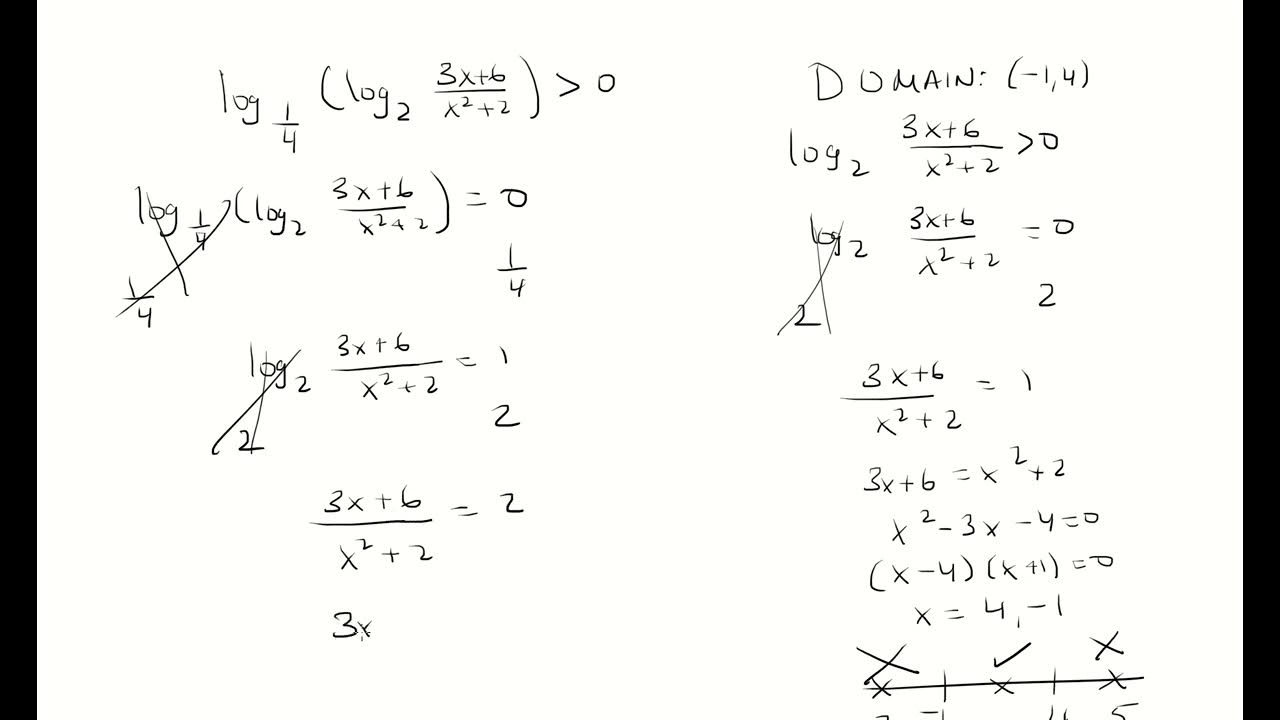 log_{1/4} (log_2 (3x+6)/(x²+2)) > 0
log_{1/4} (log_2 (3x+6)/(x²+2)) = 0
1/4 1/4
log_2 (3x+6)/(x²+2) = 1
2 2
(3x+6)/(x²+2) = 2
3x
DOMAIN: (-1,4)
log_2 (3x+6)/(x²+2) >0
log_2 (3x+6)/(x²+2) = 0
2 2
(3x+6)/(x²+2) = 1
3x+6 = x²+2
x²-3x-4=0
(x-4)(x+1)=0
x = 4,-1
X ✓ X
x x x
-1 4 5